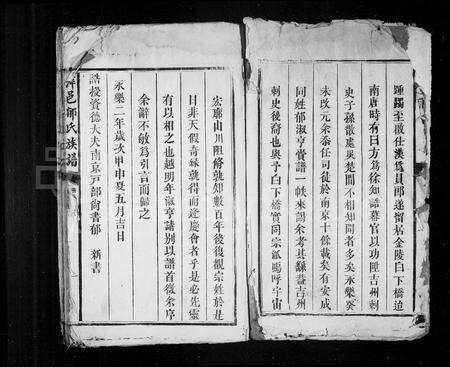 踵躅至啟仕漢爲員郎遂留居金陵白下橋迨
南唐時有曰方爲徐知誥幕官以功陞吉州刺
史子孫散處吳楚間不相知聞者多矣永樂癸
未改元余忝任司徒於南京十餘載矣有安成
同姓郁淑亨賫譜一帙來謁余考其
吉州
刺史後裔也與予白下橋實同宗派嗚呼宇宙
宏廓山川阻脩孰知數百年後復觀宗姓於是
日非天假奇緣孰得而逢慶會者乎是必先靈
有以相之也越明年淑亨請别以譜首徵余序
余辭不敏爲引言而歸之
永樂二年歲次甲申夏五月吉日
誥授資德大夫南京戸部尚書郁 新書
邑郁氏族譜